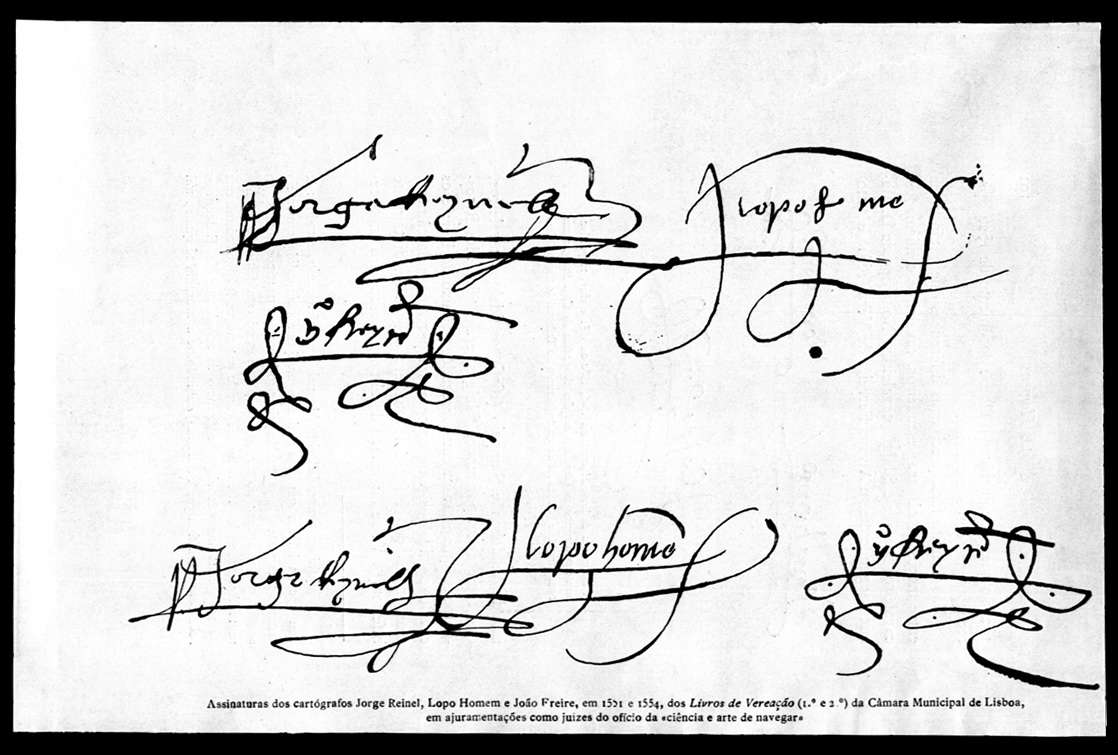 Jorge
lopo ho me
Jorge
lopo homē
Assinaturas dos cartógrafos Jorge Reinel, Lopo Homem e João Freire, em 1551 e 1554, dos Livros de Vereação (1.º e 2.º) da Câmara Municipal de Lisboa,
em ajuramentações como juizes do ofício da «ciência e arte de navegar»